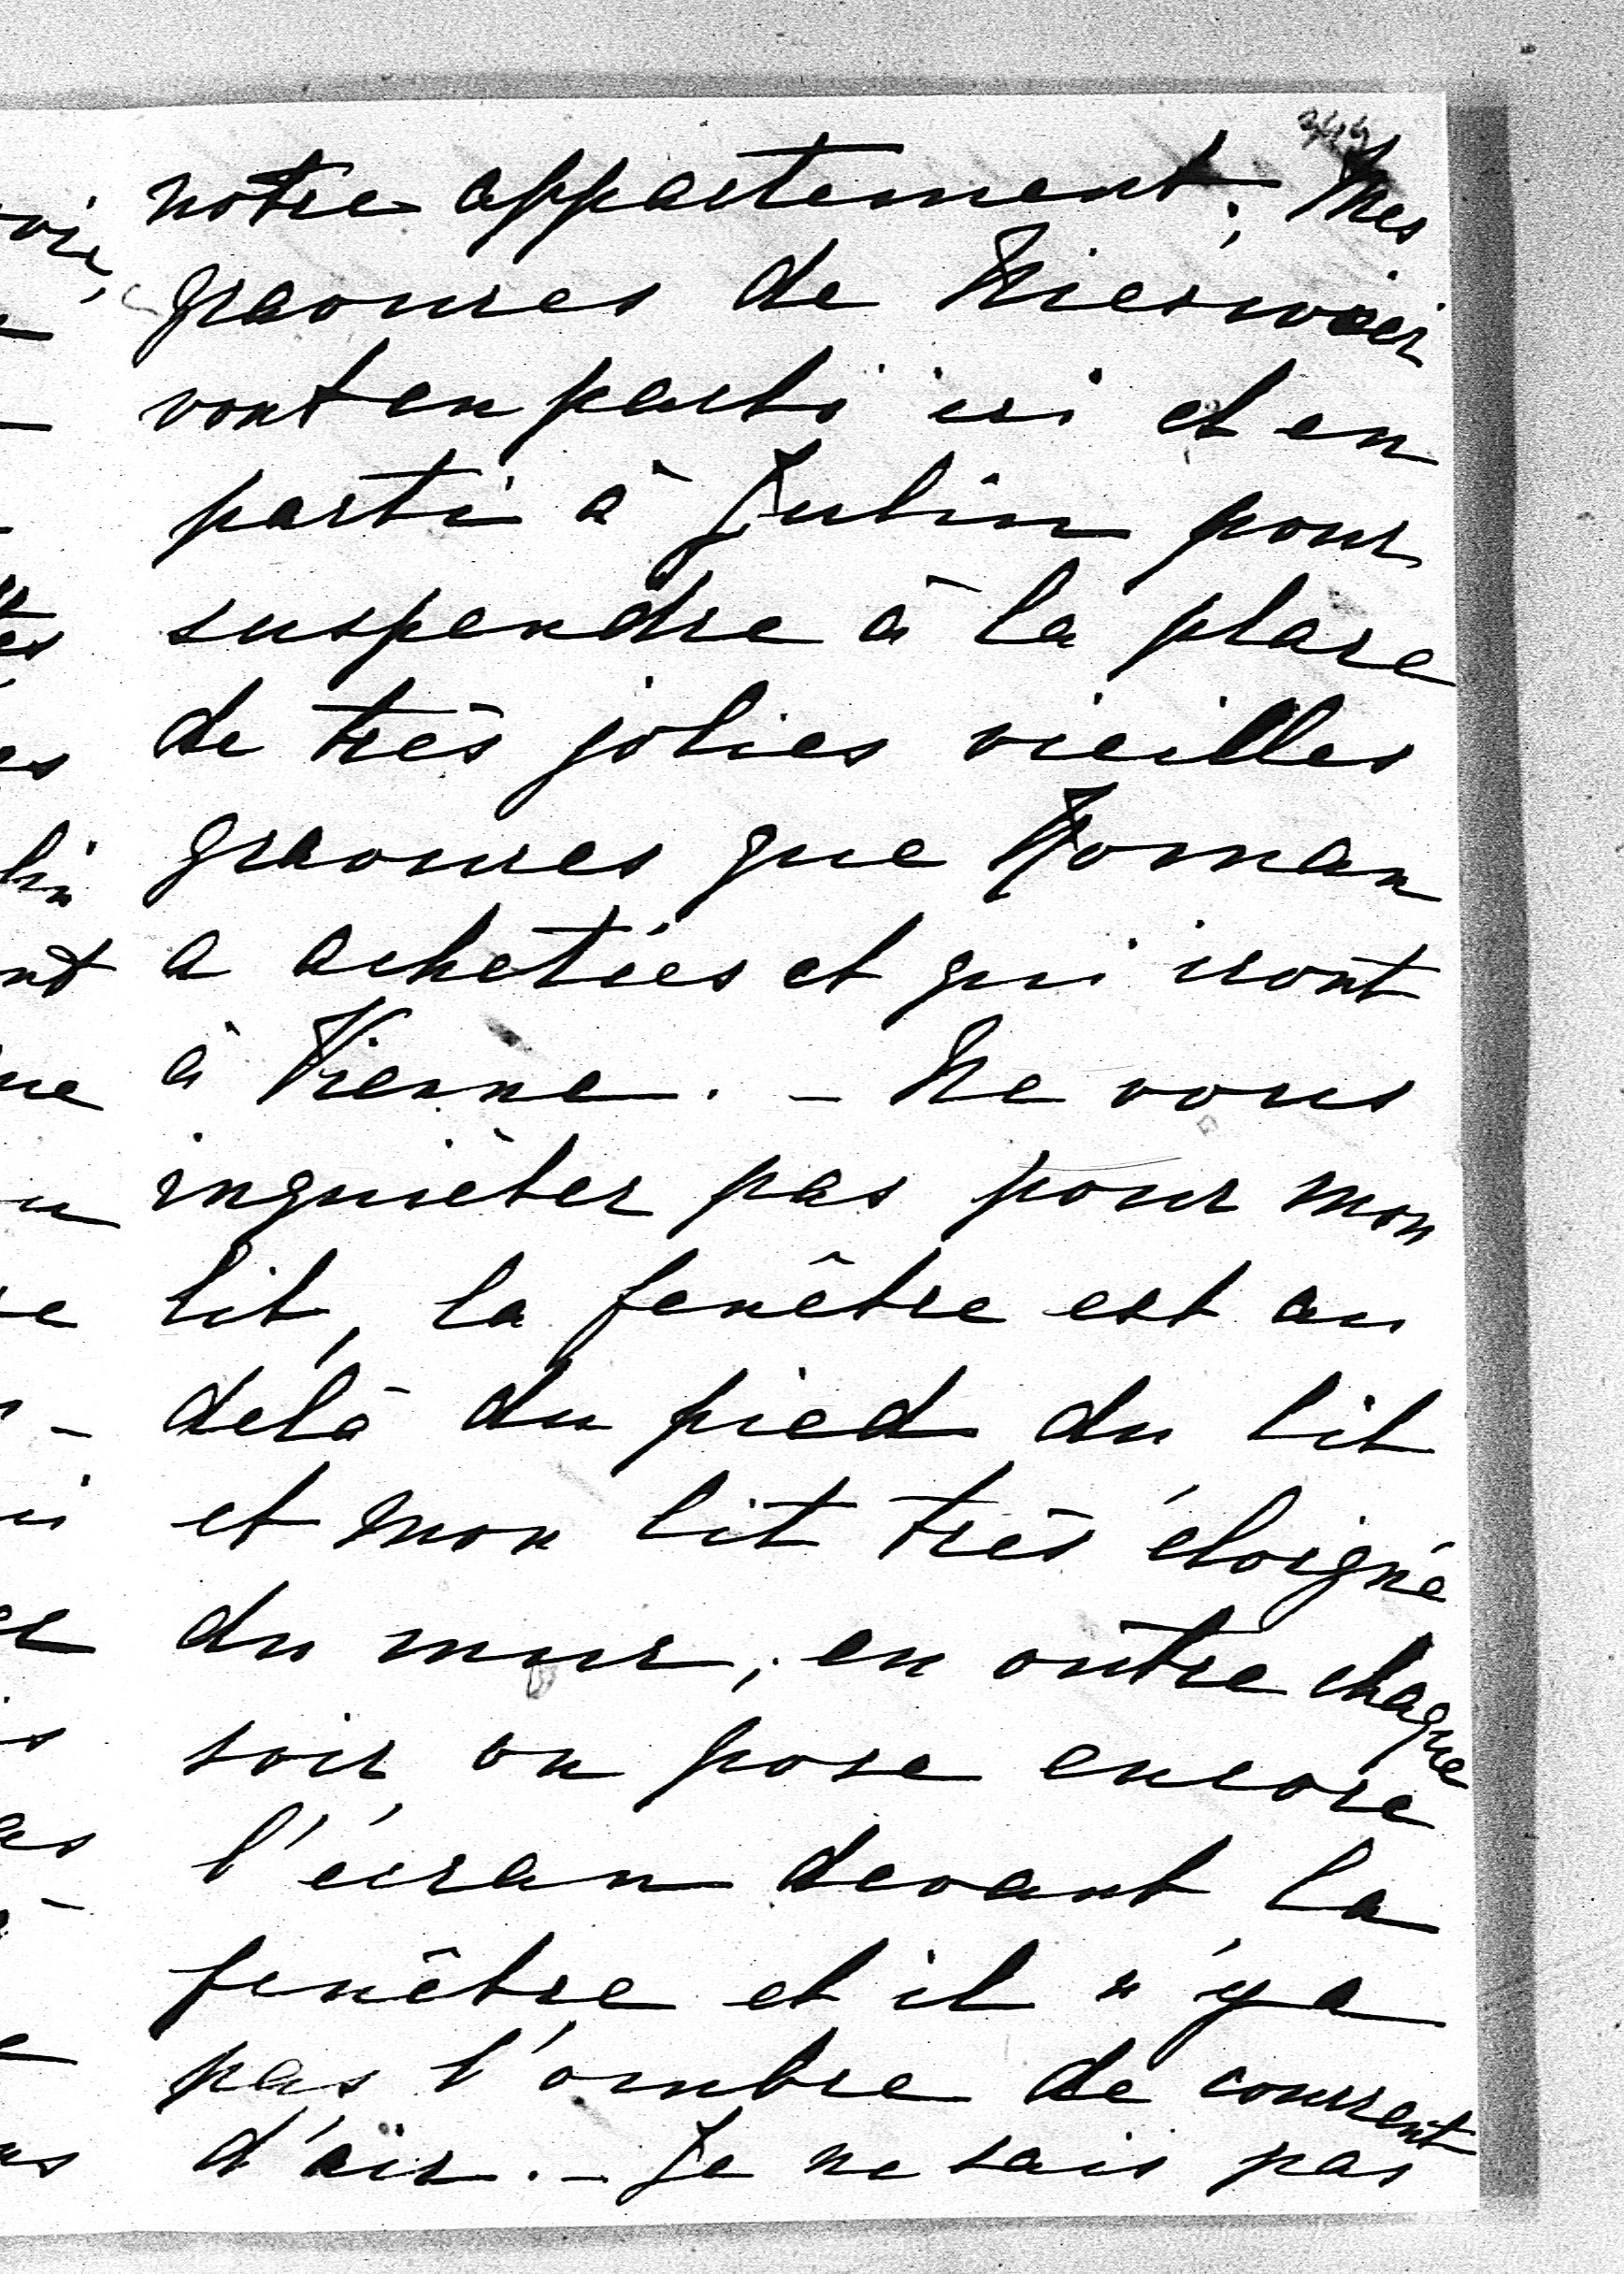 notre appartement; Mes
gravures de Nieswiei
vont en parti ici et en
parti à Julin pour
suspendre à la place
de très jolies vieilles
gravures que Roman
a achetées et qui iront
à Vienne. - Ne vous
inquiéter pas pour mon
lit, la fenêtre est au
delà du pied du lit
et mon lit très éloigné
du mur, en outre chaque
soir, on pose encore
l'écran devant la
fenêtre et il n'y a
pas l'ombre de courrent
d'air. - Je ne sais pas